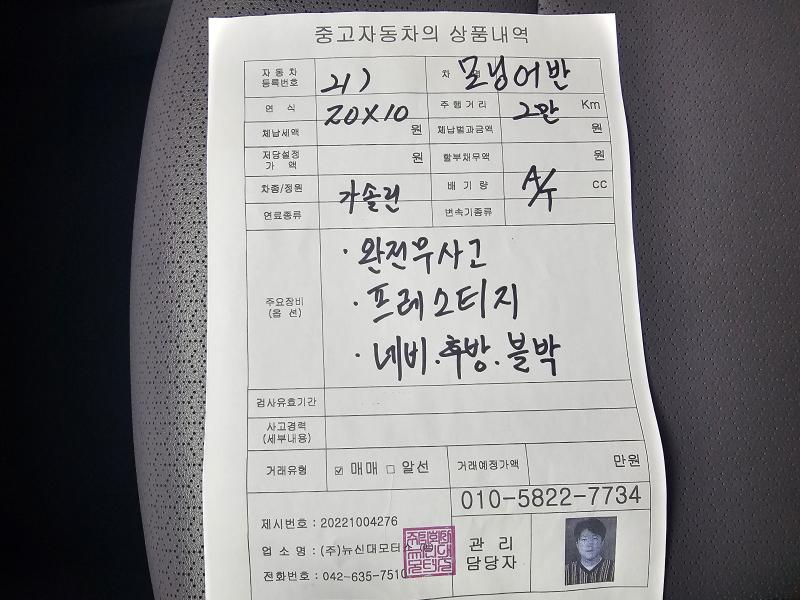 중고자동차의 상품내역
자동차 등록번호 차 명 모닝어반
연 식 20X10 주행거리 2만 Km
체납세액 원 체납벌과금액 원
저당설정 가 액 원 할부채무액 원
차종/정원 가솔린 배 기 량 A/T CC
연료종류 변속기종류
· 완전무사고
주요장비 (옵 션) · 프레스티지
· 네비.후방.블박
검사유효기간
사고경력 (세부내용)
거래유형 ☑ 매매 □ 알선 거래예정가액 만원
010-5822-7734
제시번호 : 20221004276
업 소 명 : (주)뉴신대모터스
관 리 담당자
전화번호 : 042-635-7510